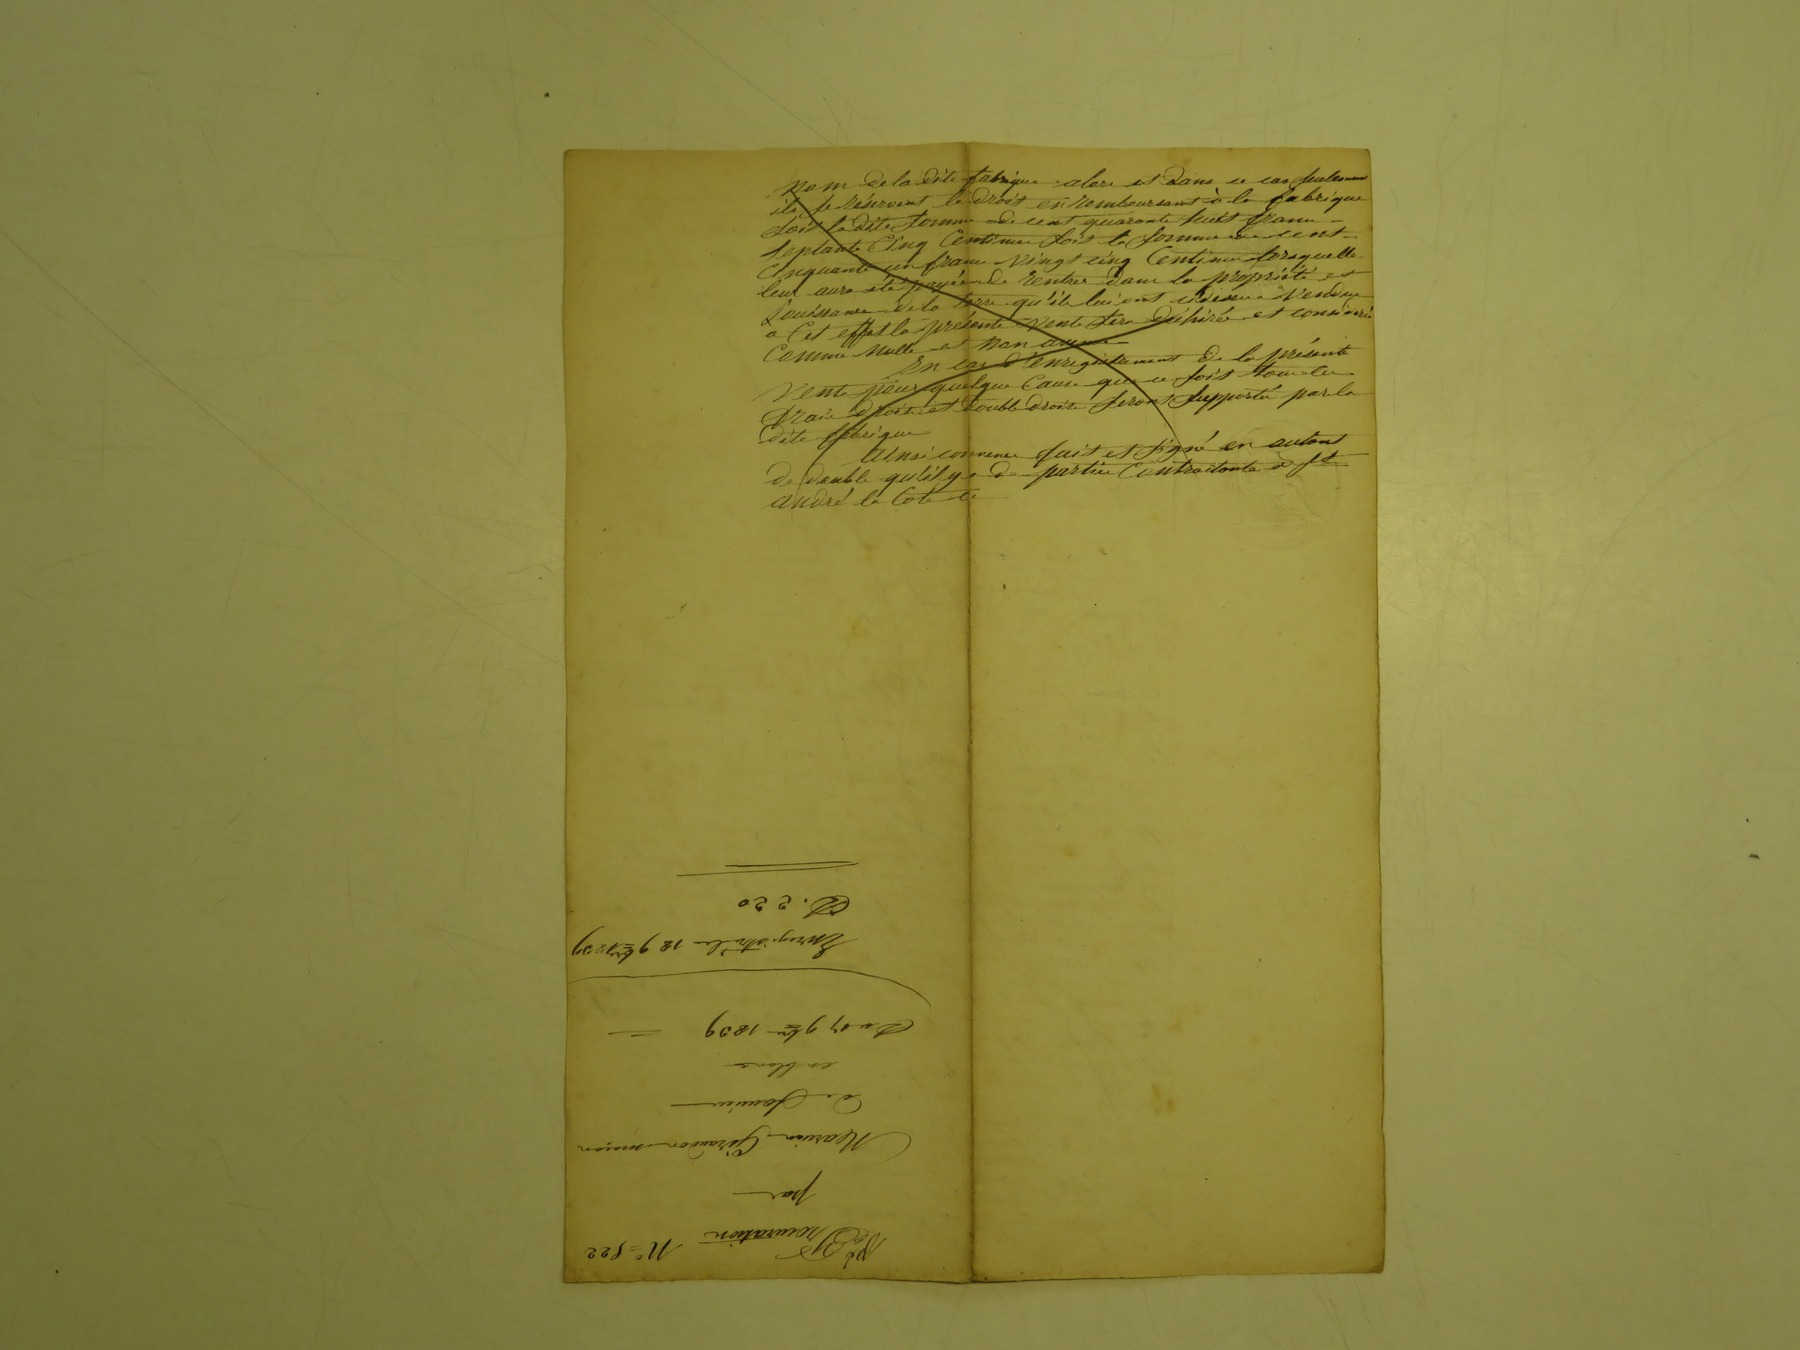 nom de la dite fabrique alors et dans ce cas seulement
ils se réservent le droit en remboursant à la fabrique
soit la dite somme de cent quarante huit francs
septante cinq centimes soit la somme de cent
cinquante un francs vingt cinq centimes lorsquelle
leur aura été payée de rentrer dans la propriété et
jouissance de la terre qu'ils lui ont cidessus vendue
a cet effet la présente vente sera déchirée et considérée
comme nulle et non avenue
En cas d'enregistrement de la présente
vente pour quelque cause que ce soit tous les
frais droits et double droits seront supportés par la
dite fabrique
Ainsi convenu fait et signé en autant
de double qu'il y a de parties contractantes à St
André la Cote le
N° 822
Procuration
par
Marion Giraudon maçon
de
en blanc
Du 17 9bre 1839
Enregistré le 18 9bre 1839
D. 2 20